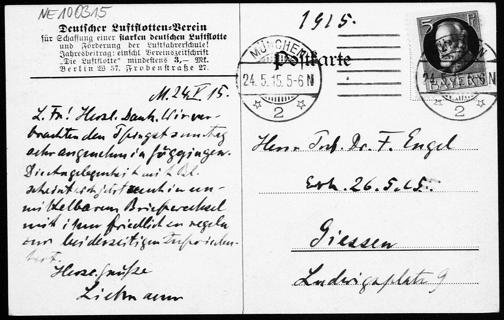 NE100315
Deutscher Luftflotten-Verein
für Schaffung einer starken deutschen Luftflotte
und Förderung der Luftfahrerschule!
Jahresbeitrag: einschl Vereinszeitschrift
"Die Luftflotte" mindestens 3,— Mk.
Berlin W 57, Frobenstraße 27.
1915.
Postkarte
MÜNCHEN
24.5.15.5-6N
2
5
BAYERN
24.5.
N
2
M. 24.V.15.
L. Fr! Herzl. Dank. Wir ver-
brachten den Pfingstsonntag
sehr angenehm in
Die Angelegenheit mit
scheint sich jetzt in un-
mittelbarem Briefwechsel
mit ihm friedlich zu regeln
zur beiderseitigen Zufrieden-
heit.
Herzl. Grüße
Liebmann
Herrn Prof. Dr. F. Engel
Erh. 26.5.15.
Giessen
Ludwigsplatz 9